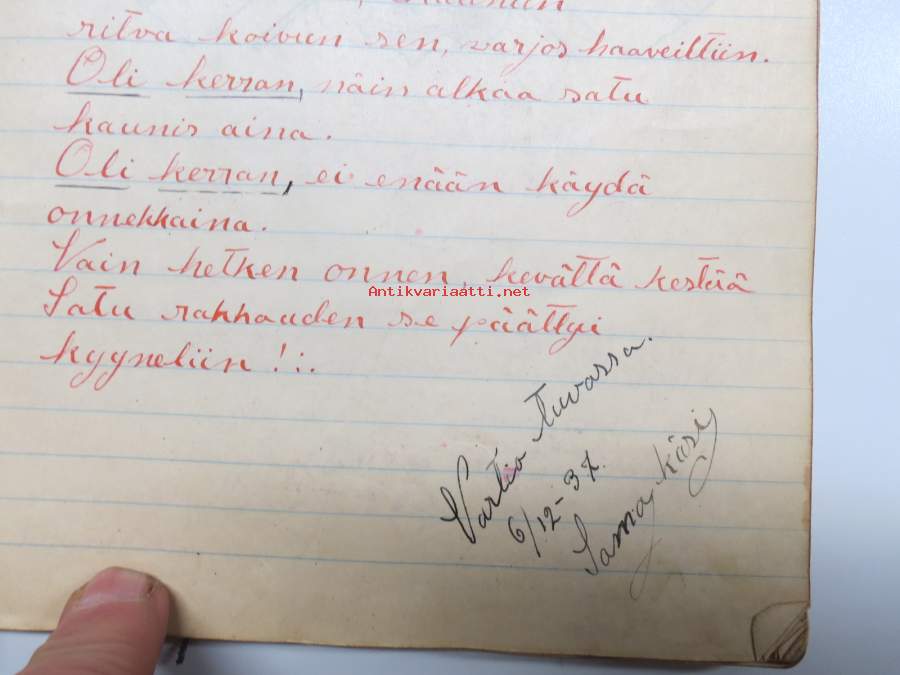 ritva koivun sen, varjos haaveiltiin.
Oli kerran, näin alkaa satu
kaunis aina.
Oli kerran, ei enään käydä
onnekkaina.
Vain hetken onnen, kevättä kestää
Antikvariaatti.net
Satu rakkauden se päättyi
kyyneliin!..
Vartio tuvassa.
6/12-37.
Sama käsi